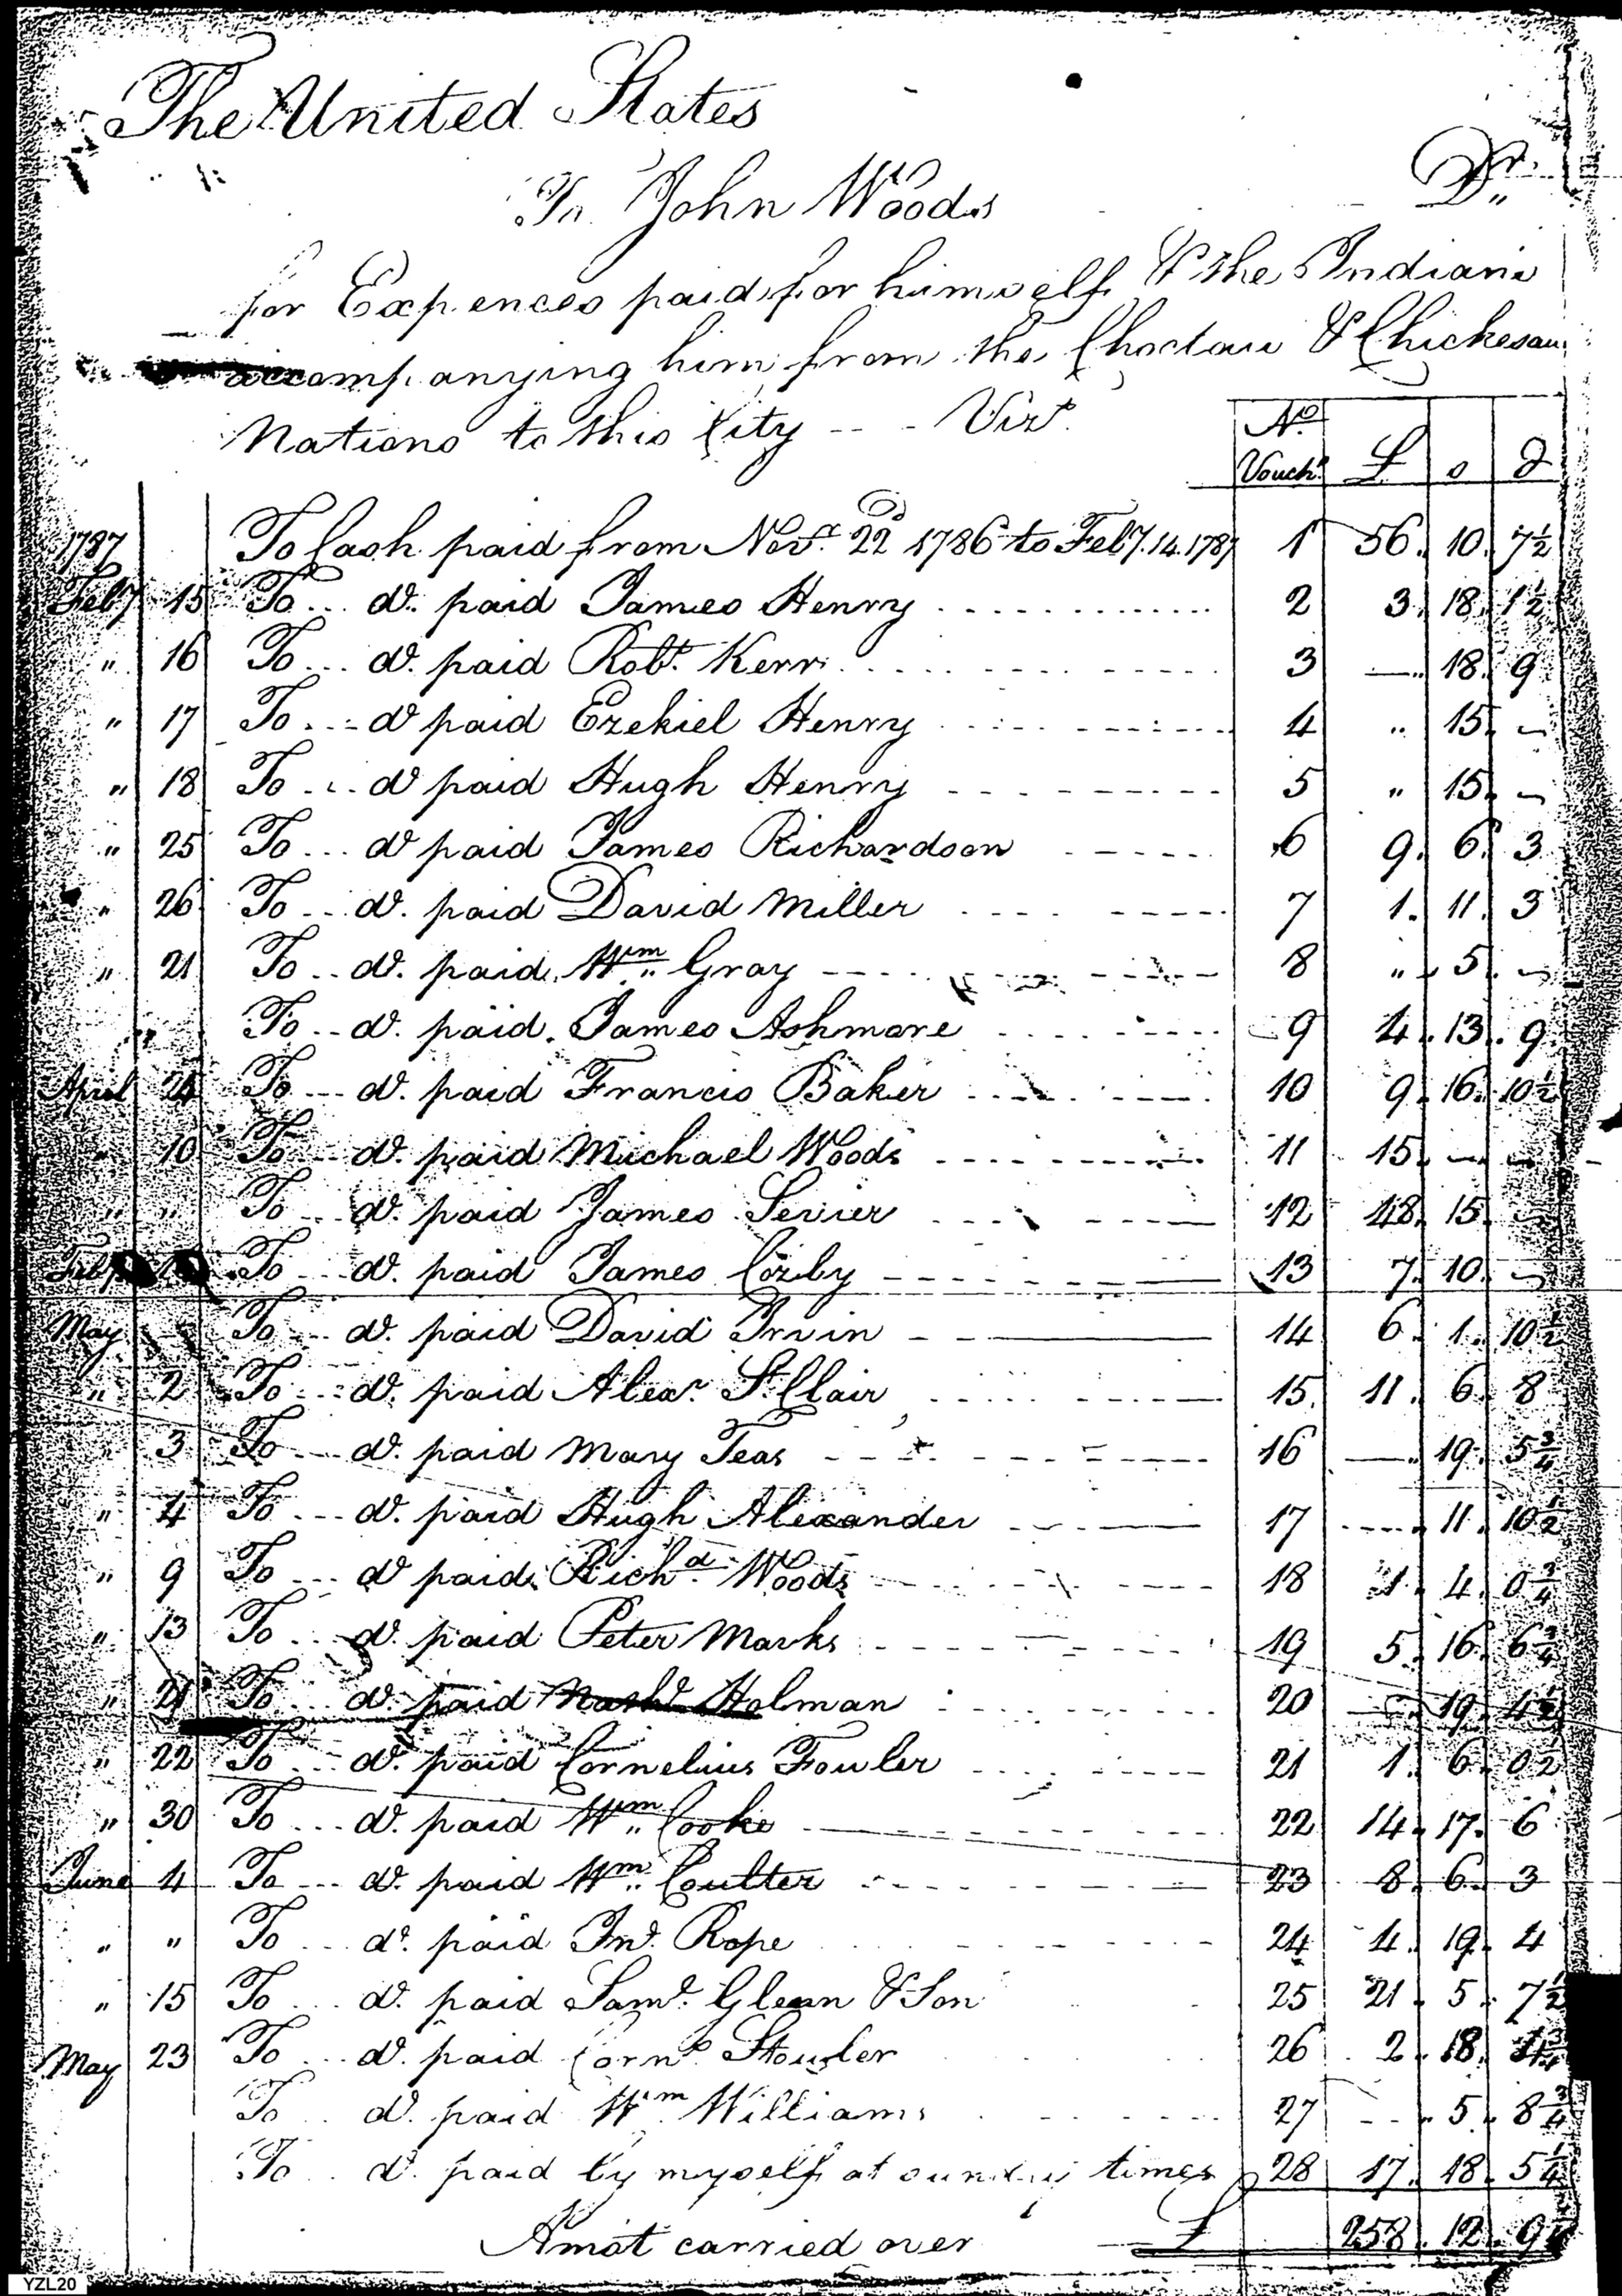 The United States
Dr.
To John Woods
for Expences paid for himself & the Indians
accompanying him from the Choctaw & Chickesaw
Nations to this City -- Vizt.
No. Vouchr. £ s d
1787 To Cash paid from Novr. 22d 1786 to Feby. 14. 1787 1 56. 10. 7½
Feby 15 To ... do. paid James Henry 2 3. 18. 1½
" 16 To ... do. paid Robt. Kerr 3 — 18. 9
" 17 To ... do paid Ezekiel Henry 4 " 15. —
" 18 To ... do paid Hugh Henry 5 " 15. —
" 25 To ... do paid James Richardson 6 9. 6. 3
" 26 To ... do. paid David Miller 7 1. 11. 3
" 21 To .. do. paid Wm. Gray 8 " 5. —
" To .. do. paid James Ashmore 9 4. 13. 9
April 24 To ... do. paid Francis Baker 10 9. 16. 10½
" 10 To ... do. paid Michael Woods 11 15. — —
" " To ... do. paid James Sevier 12 48. 15. —
Feby To ... do. paid James Cozby 13 7. 10. —
May To ... do. paid David Irvin 14 6. 1. 10½
" 2 To ... do. paid Alexr. St. Clair 15 11. 6. 8
" 3 To ... do. paid Mary Teas 16 — 19. 5¾
" 4 To ... do. paid Hugh Alexander 17 — 11. 10½
" 9 To ... do paid Richd. Woods 18 1. 4. 0¾
" 13 To ... do. paid Peter Marks 19 5. 16. 6¾
" 21 To ... do. paid Holman 20 — 19. 4½
" 22 To ... do. paid Cornelius Fowler 21 1. 6. 0½
" 30 To ... do. paid Wm. Cooke 22 14. 17. 6
June 4 To ... do. paid Wm. Coulter 23 8. 6. 3
" " To ... do. paid Jno. Rope 24 4. 19. 4
" 15 To ... do. paid Saml. Glenn & Son 25 21. 5. 7½
May 23 To ... do. paid Corns. 26 2. 18.
To .. do. paid Wm. Williams 27 — 5. 8¾
To .. do. paid by myself at sundry times 28 17. 18. 5¼
Amot carried over £ 258. 12. 9
YZL20